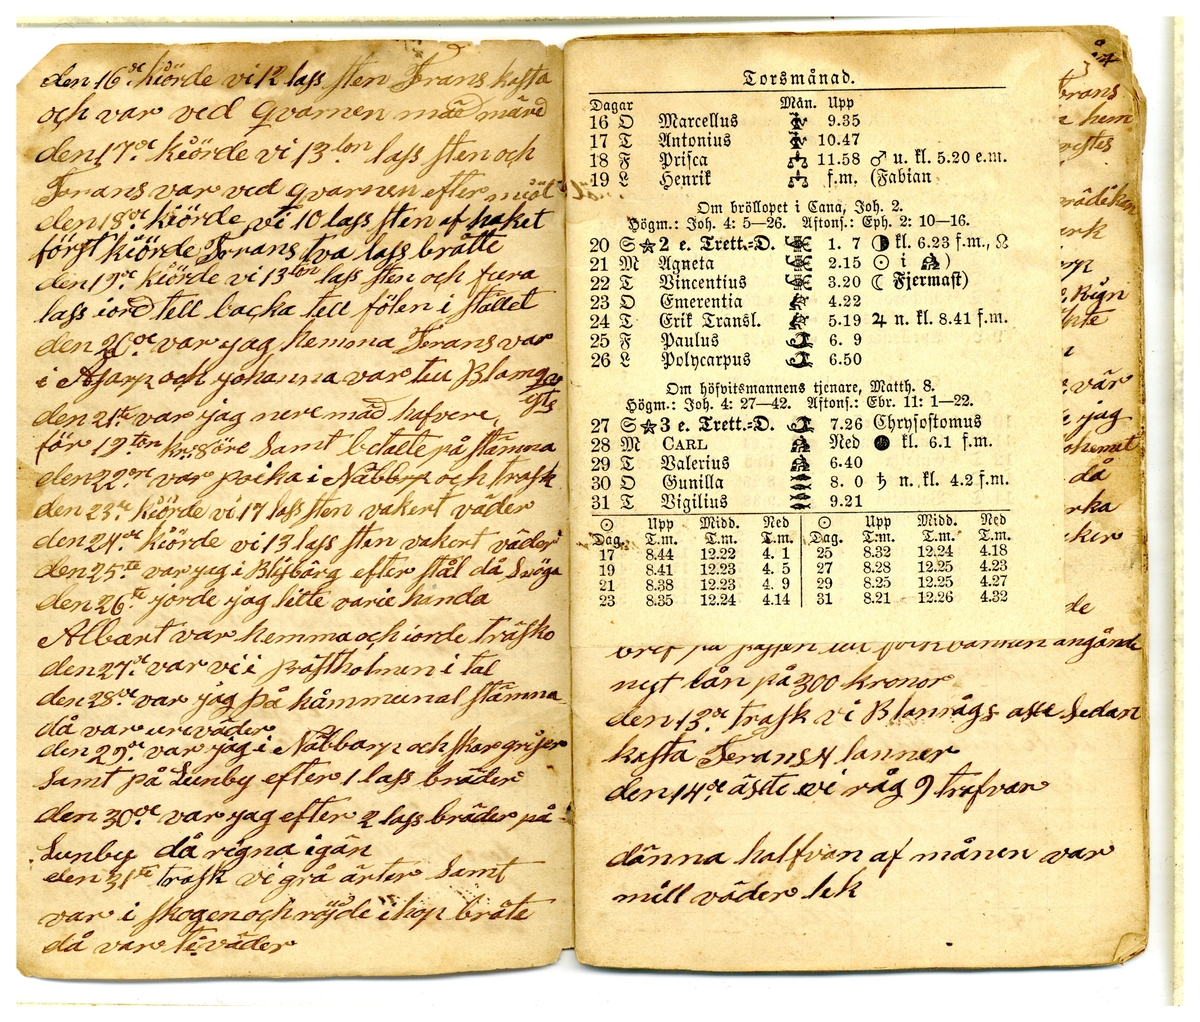 den 16de kiörde vi 12 lass sten Frans kasta
och var ved qvarnen mäd märd
den 17de kiörde vi 13ton lass sten och
Frans var ved qvarnen efter miöl
den 18de kiörde vi 10 lass sten af haket
först kiörde Frans tva lass bråtte
den 19de kiörde vi 13ton lass sten och fura
lass iord tell backa tell fölen i stallet
den 20de var jag hemma Frans var
i Asarp och johanna var till
den 21te var jag nere mäd hafvere
för 19ton kr öre Samt betalte på stämma
den 22dre var poika i Näbbarp och trask
den 23de kiörde vi 17 lass sten vakert väder
den 24de kiörde vi 13 lass sten vakert väder
den 25te var jag i Blisbärg efter stål då
den 26te jorde jag litte varie handa
Albart var hemma och iorde träsko
den 27de var vi i präftholmen i tal
den 28de var jag på kåmmunal stämna
då var urväder
den 29de var jag i Näbbarp och
Samt på Lunby efter 1 lass bräder
den 30de var jag efter 2 lass bräder på
Lunby då rigna igän
den 31te trask vi grå ärter Samt
var i skogen och röjde ihop bråte
då var teväder
Torsmånad.
Dagar Mån. Upp
16 O Marcellus 9.35
17 T Antonius 10.47
18 F Prisca ♎ 11.58 ♂ u. kl. 5.20 e.m.
19 L Henrik ♎ f.m. (Fabian
Om bröllopet i Cana, Joh. 2.
Högm.: Joh. 4: 5—26. Aftons.: Eph. 2: 10—16.
20 S ☆ 2 e. Trett.=D. 1. 7 ◑ kl. 6.23 f.m., ☊
21 M Agneta 2.15 ☉ i )
22 T Vincentius 3.20 ☾ Fjermast)
23 O Emerentia 4.22
24 T Erik Transl. 5.19 ♃ n. kl. 8.41 f.m.
25 F Paulus 6. 9
26 L Polycarpus 6.50
Om höfvitsmannens tjenare, Matth. 8.
Högm.: Joh. 4: 27—42. Aftons.: Ebr. 11: 1—22.
27 S ☆ 3 e. Trett.=D. 7.26 Chrysostomus
28 M CARL Ned ● kl. 6.1 f.m.
29 T Valerius 6.40
30 O Gunilla 8. 0 ♄ n. kl. 4.2 f.m.
31 T Vigilius 9.21
☉ Upp Midd. Ned ☉ Upp Midd. Ned
Dag. T.m. T.m. T.m. Dag. T.m. T.m. T.m.
17 8.44 12.22 4. 1 25 8.32 12.24 4.18
19 8.41 12.23 4. 5 27 8.28 12.25 4.23
21 8.38 12.23 4. 9 29 8.25 12.25 4.27
23 8.35 12.24 4.14 31 8.21 12.26 4.32
nyt lån på 300 kronor
den 13de trask vi Sedan
kasta Frans 4 lanner
den 14de äste vi råg 9 trafvar
dänna halfvan af månen var
mill väder lek